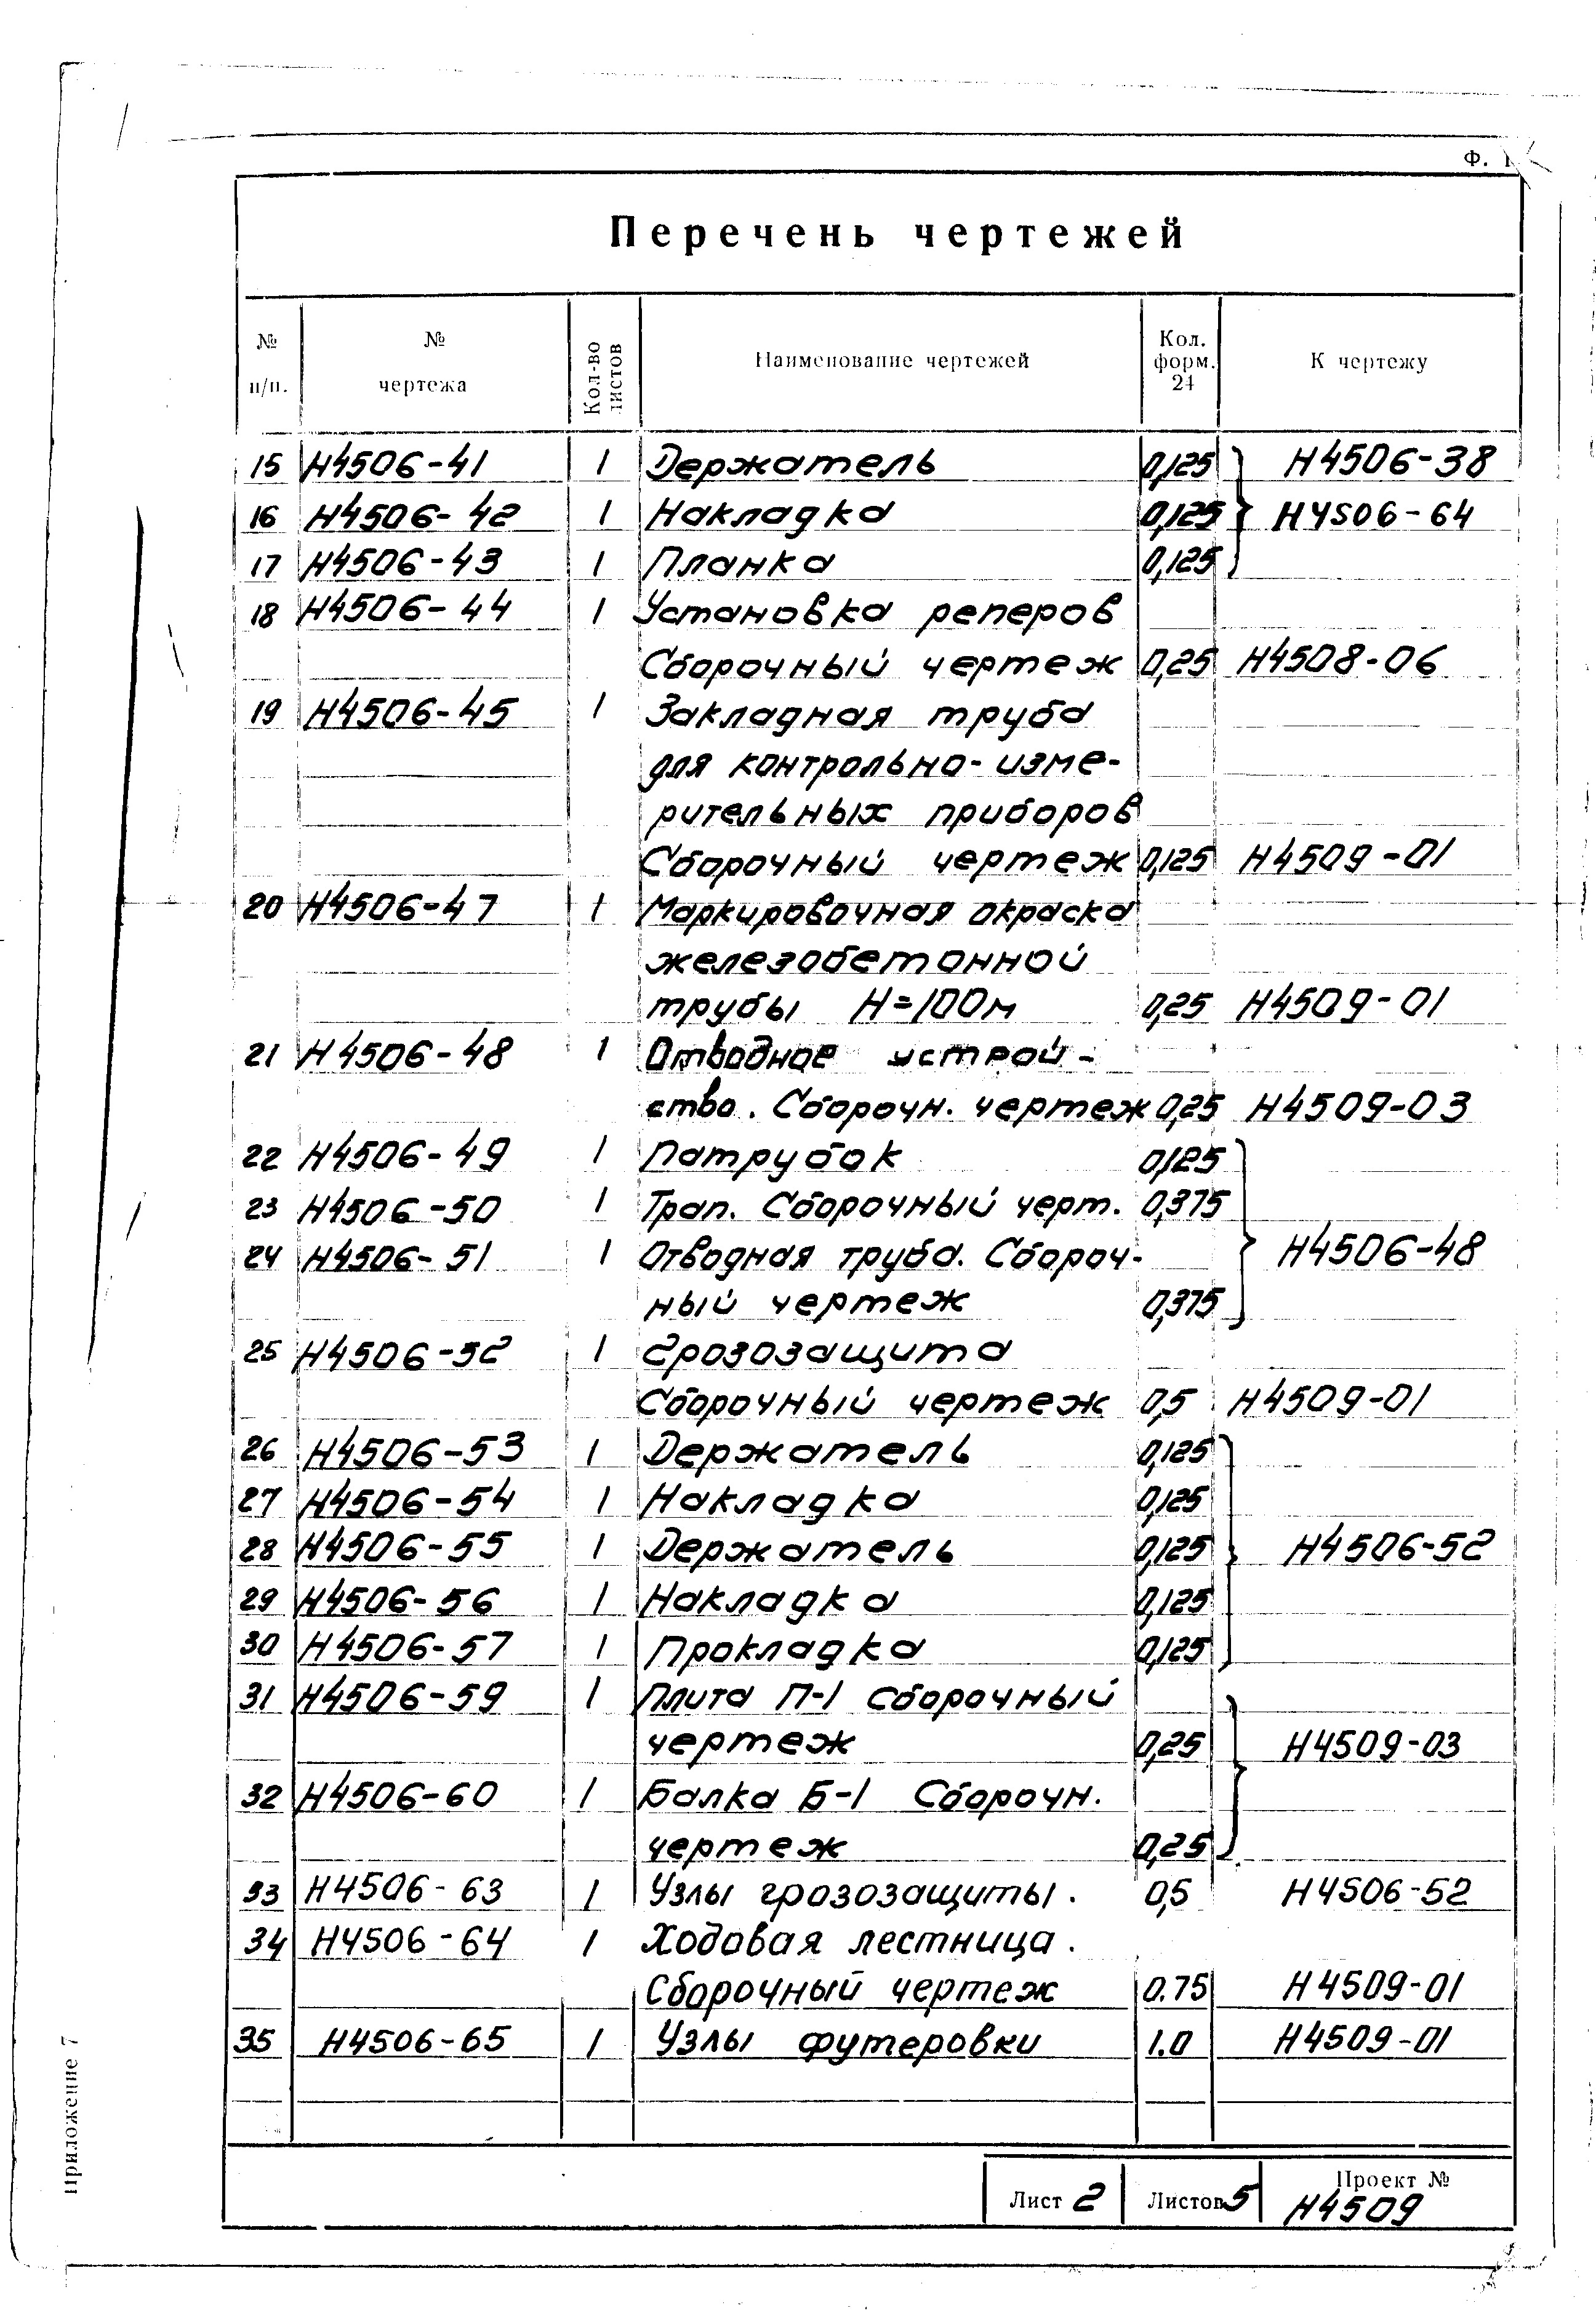 Ф. 1
Перечень чертежей
№ п/п.
№ чертежа
Кол-во листов
Наименование чертежей
Кол. форм. 24
К чертежу
15 Н4506-41 1 Держатель 0,125 Н4506-38
16 Н4506-42 1 Накладка 0,125 Н4506-64
17 Н4506-43 1 Планка 0,125
18 Н4506-44 1 Установка реперов
Сборочный чертеж 0,25 Н4508-06
19 Н4506-45 1 Закладная труба
для контрольно-изме-
рительных приборов
Сборочный чертеж 0,125 Н4509-01
20 Н4506-47 1 Маркировочная окраска
железобетонной
трубы Н=100м 0,25 Н4509-01
21 Н4506-48 1 Отводное устрой-
ство. Сборочн. чертеж 0,25 Н4509-03
22 Н4506-49 1 Патрубок 0,125
23 Н4506-50 1 Трап. Сборочный черт. 0,375
24 Н4506-51 1 Отводная труба. Сбороч- Н4506-48
ный чертеж 0,375
25 Н4506-52 1 Грозозащита
Сборочный чертеж 0,5 Н4509-01
26 Н4506-53 1 Держатель 0,125
27 Н4506-54 1 Накладка 0,125
28 Н4506-55 1 Держатель 0,125 Н4506-52
29 Н4506-56 1 Накладка 0,125
30 Н4506-57 1 Прокладка 0,125
31 Н4506-59 1 Плита П-1 Сборочный
чертеж 0,25 Н4509-03
32 Н4506-60 1 Балка Б-1 Сборочн.
чертеж 0,25
33 Н4506-63 1 Узлы грозозащиты. 0,5 Н4506-52
34 Н4506-64 1 Ходовая лестница.
Сборочный чертеж 0.75 Н4509-01
35 Н4506-65 1 Узлы футеровки 1.0 Н4509-01
Лист 2
Листов 5
Проект №
Н4509
Приложение 7